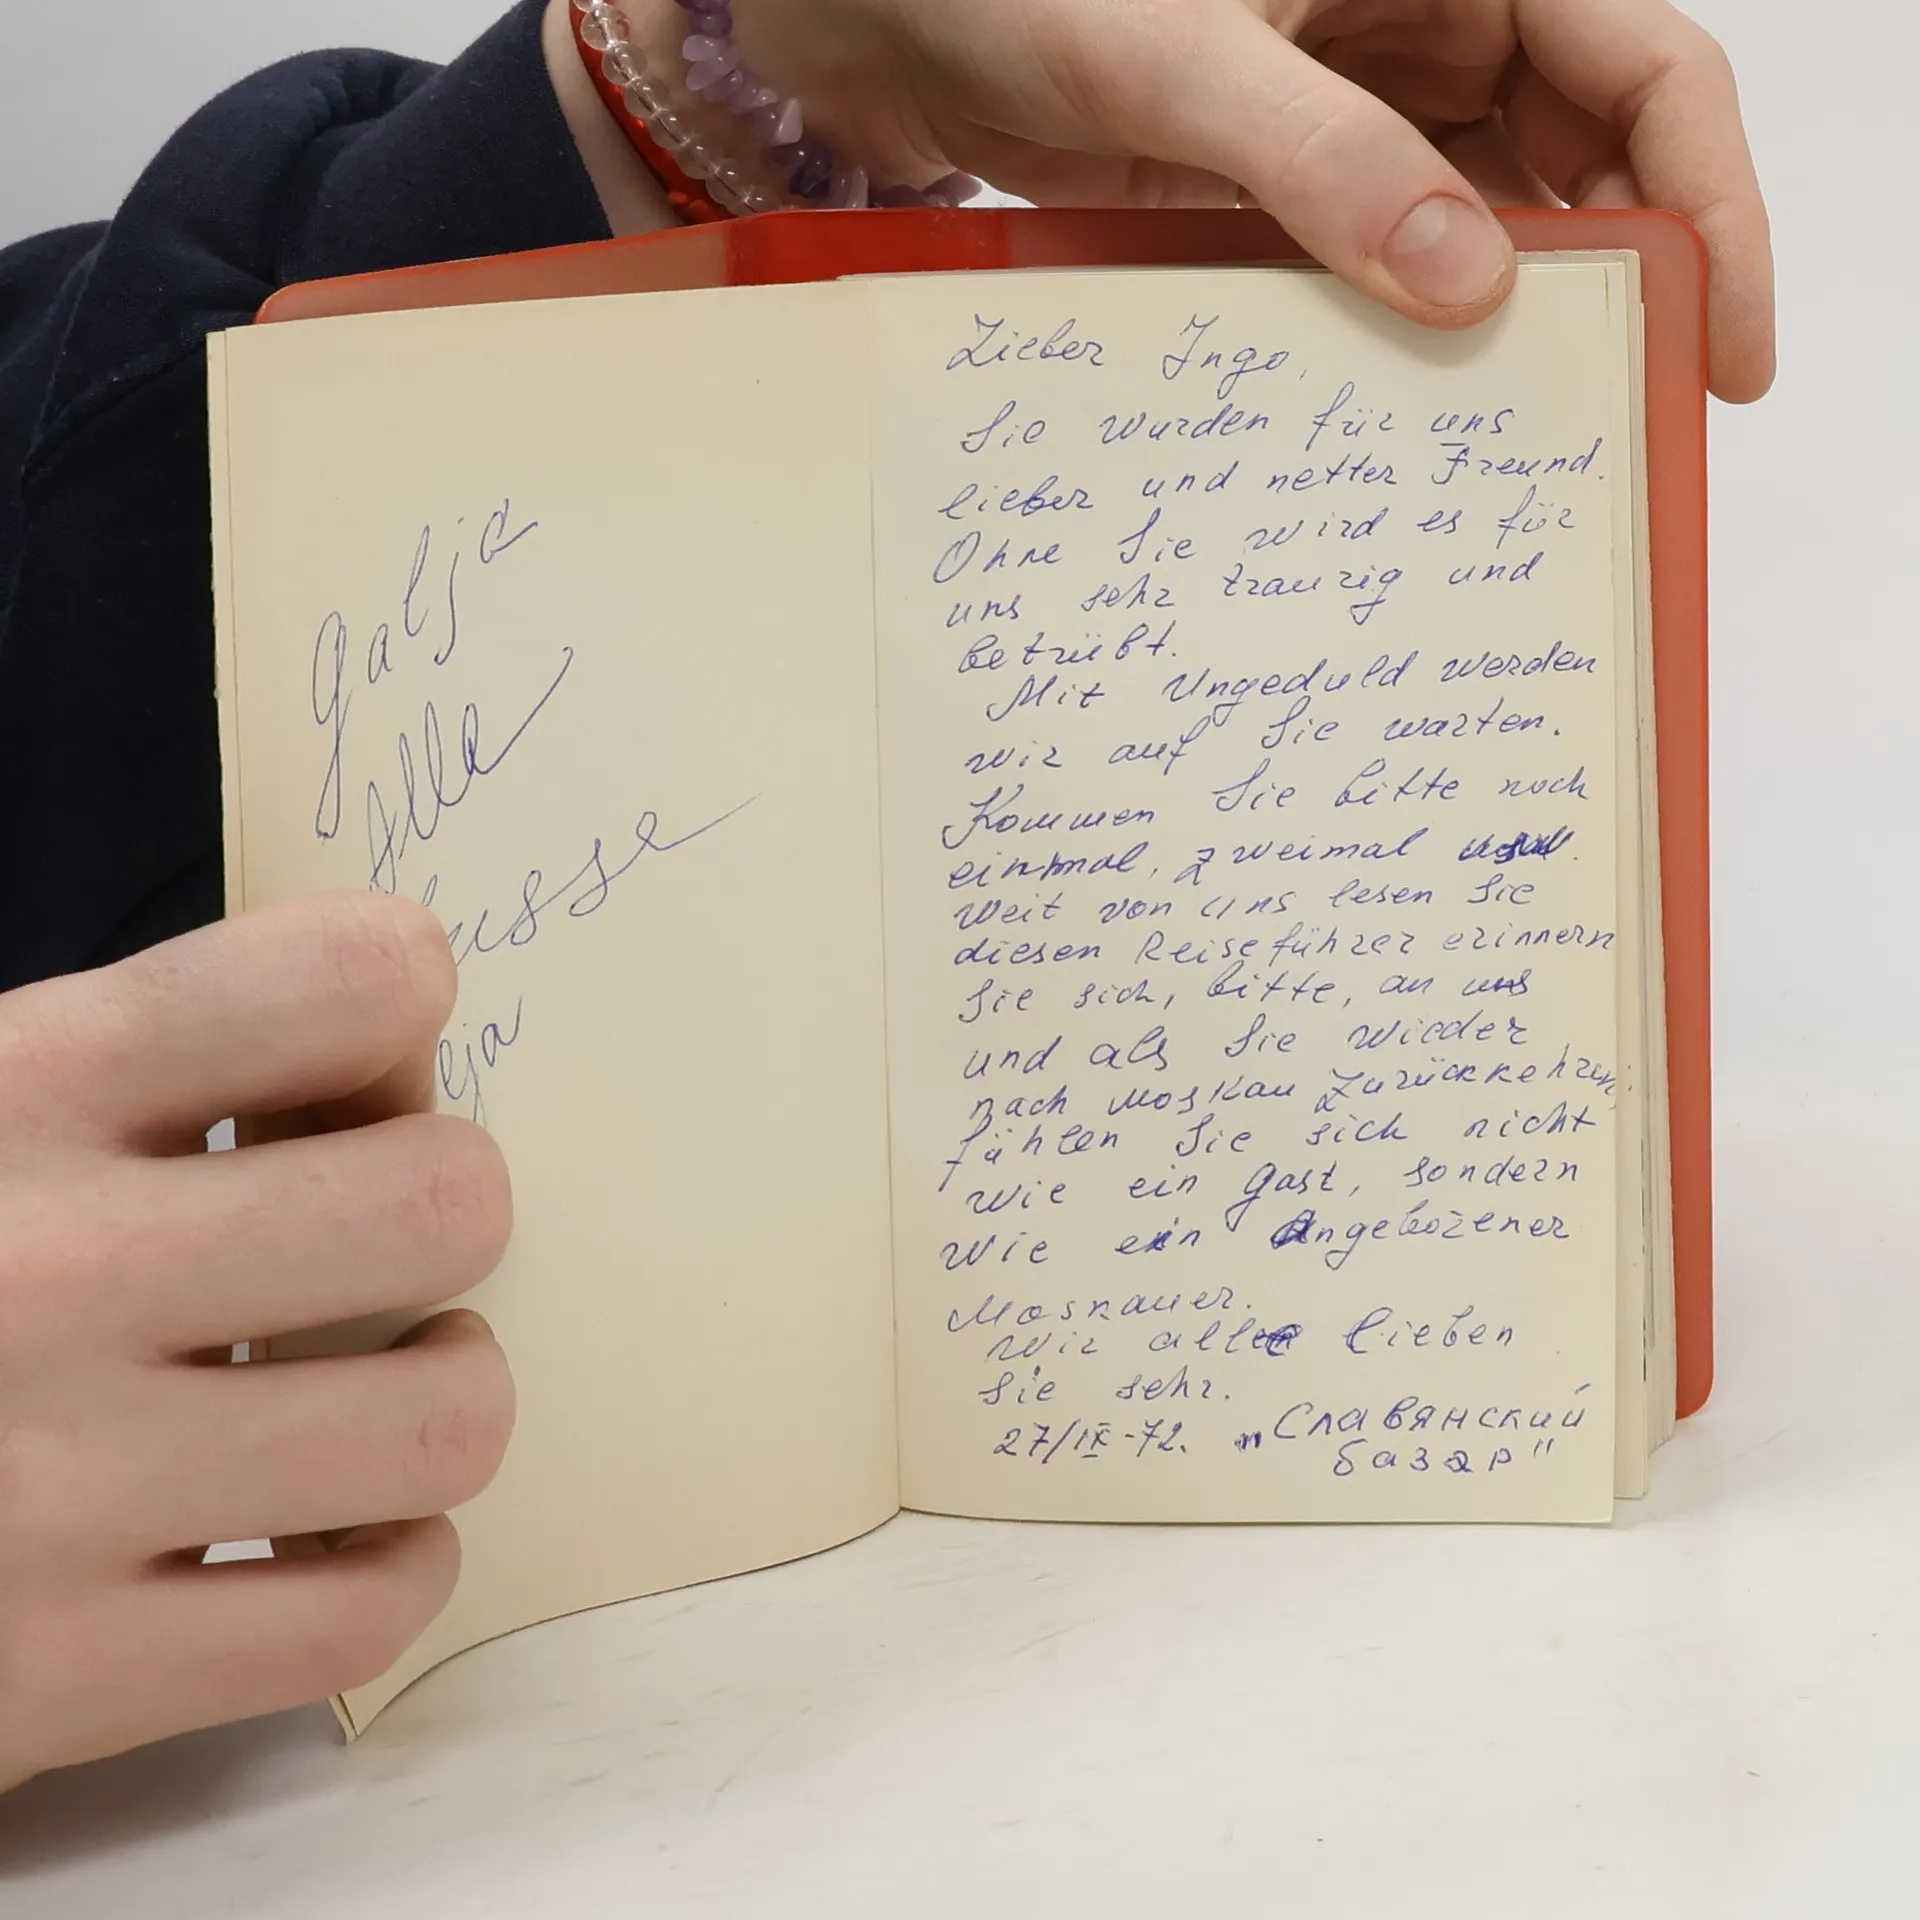 Galja
Alla
Lieber Ingo,
Sie wurden für uns
lieber und netter Freund.
Ohne Sie wird es für
uns sehr traurig und
betrübt.
Mit Ungeduld werden
wir auf Sie warten.
Kommen Sie bitte noch
einmal, zweimal
Weit von uns lesen Sie
diesen Reiseführer erinnern
Sie sich, bitte, an uns
und als Sie wieder
nach Moskau zurückkehren,
fühlen Sie sich nicht
wie ein Gast, sondern
wie ein Angeborener
Moskauer.
Wir alle lieben
Sie sehr.
27/IX-72. „Славянский
базар"